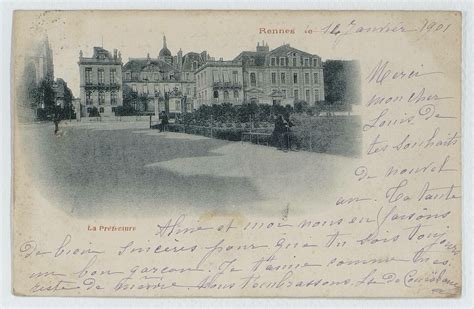 Rennes le 14 Janvier 1901
Merci
mon cher
Louis de
tes souhaits
de nouvel
an. Ta tante
La Préfecture
et moi nous en faisons
de bien sincères pour que tu sois toujours
un bon garçon. Je t'aime comme tu es,
reste de même. Nous t'embrassons,